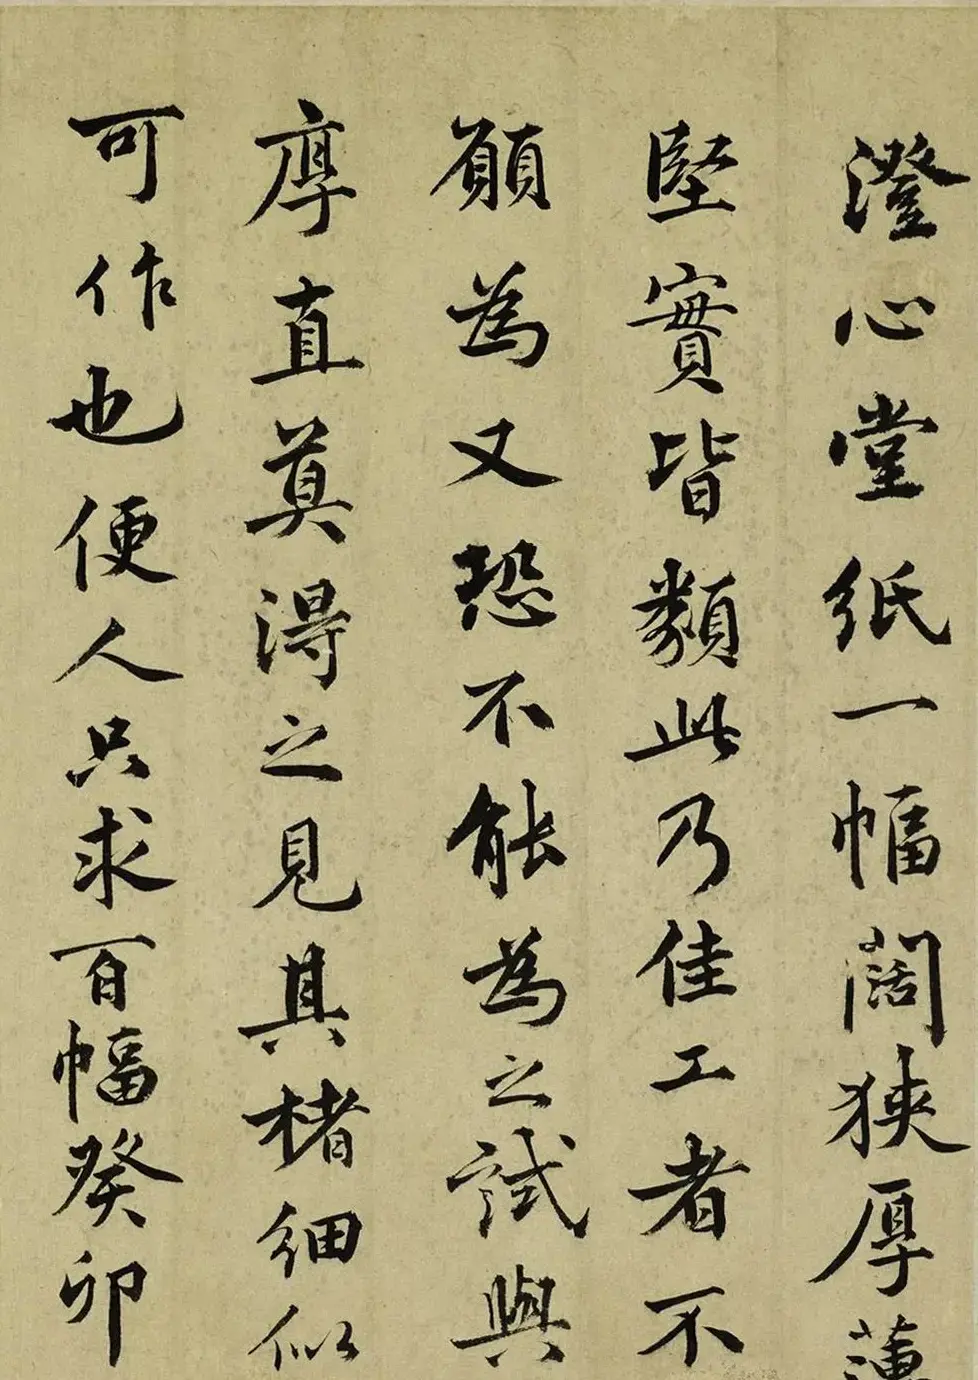 澄心堂紙一幅闊狹厚薄
堅實皆類此乃佳工者不
願為又恐不能為之試與
厚直莫得之見其楮細似
可作也便人只求百幅癸卯